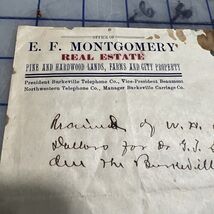 OFFICE OF
E. F. MONTGOMERY
REAL ESTATE
PINE AND HARDWOOD LANDS, FARMS AND CITY PROPERTY
President Burkeville Telephone Co., Vice-President Beaumont
Northwestern Telephone Co., Manager Burkeville Carriage Co.
Received of W. H.
Dollars for Dr
due the Burkeville